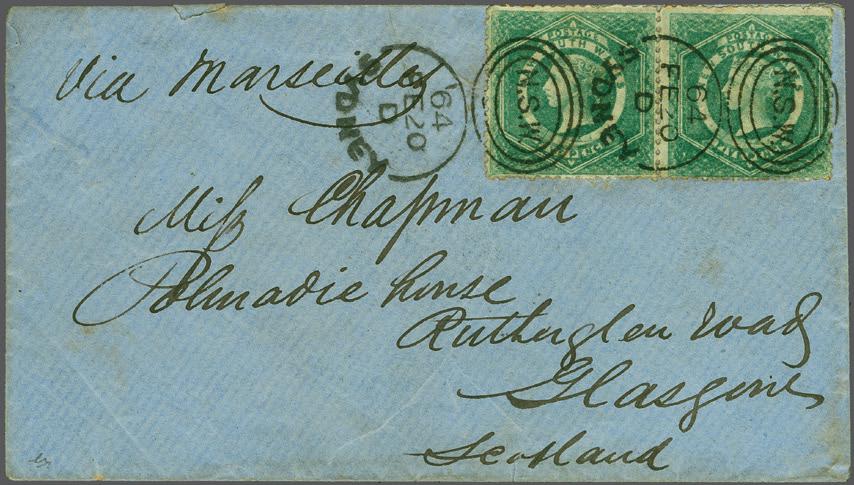 via Marseilles
SYDNEY
'64
FE20
D
POSTAGE
SOUTH WALES
PENCE
N.S.W.
SYDNEY
'64
FE20
D
POSTAGE
SOUTH
N.S.W.
Miſs Chapman
Polmadie house
Rutherglen road
Glasgow
Scotland